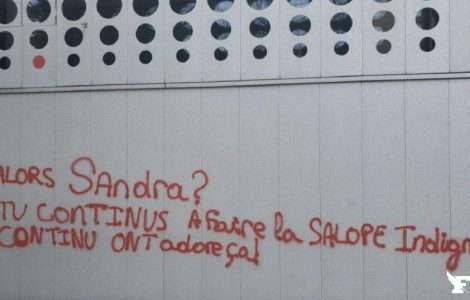 ALORS SAndra?
TU CONTINUS A Faire la SALOPE Indign
CONTINU ONT adore ça!